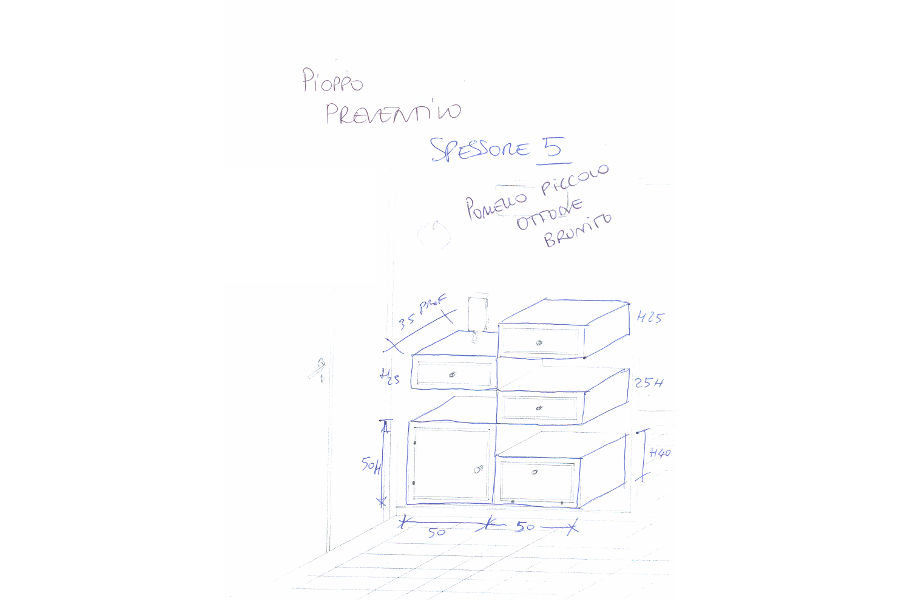 PIOPPO
PREVENTIVO
SPESSORE 5
POMELLO PICCOLO
OTTONE
BRUNITO
35 PROF
H25
H25
25H
50H
H40
50
50